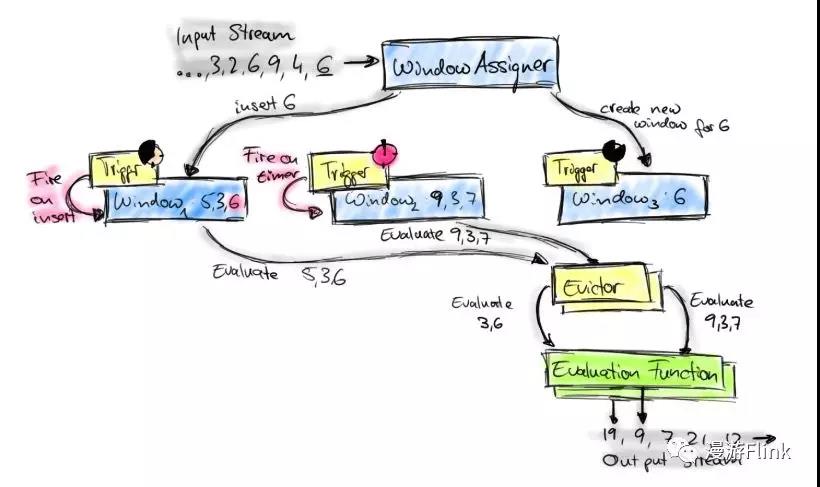 Input Stream
...,3,2,6,9,4,6
Window Assigner
insert 6
create new
window for 6
Trigger
Trigger
Trigger
Fire
on
insert
Fire on
timer
Window1 5,3,6
Window2 9,3,7
Window3 6
Evaluate 5,3,6
Evaluate 9,3,7
Evictor
Evaluate
3,6
Evaluate
9,3,7
Evaluation Function
19, 9, 7, 21, 12
Output Stream
漫游Flink